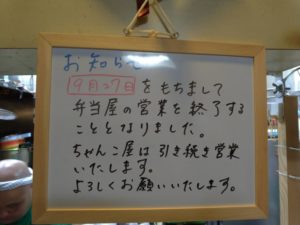 お知らせ
9月27日をもちまして
弁当屋の営業を終了する
こととなりました。
ちゃんこ屋は引き続き営業
いたします。
よろしくお願いいたします。